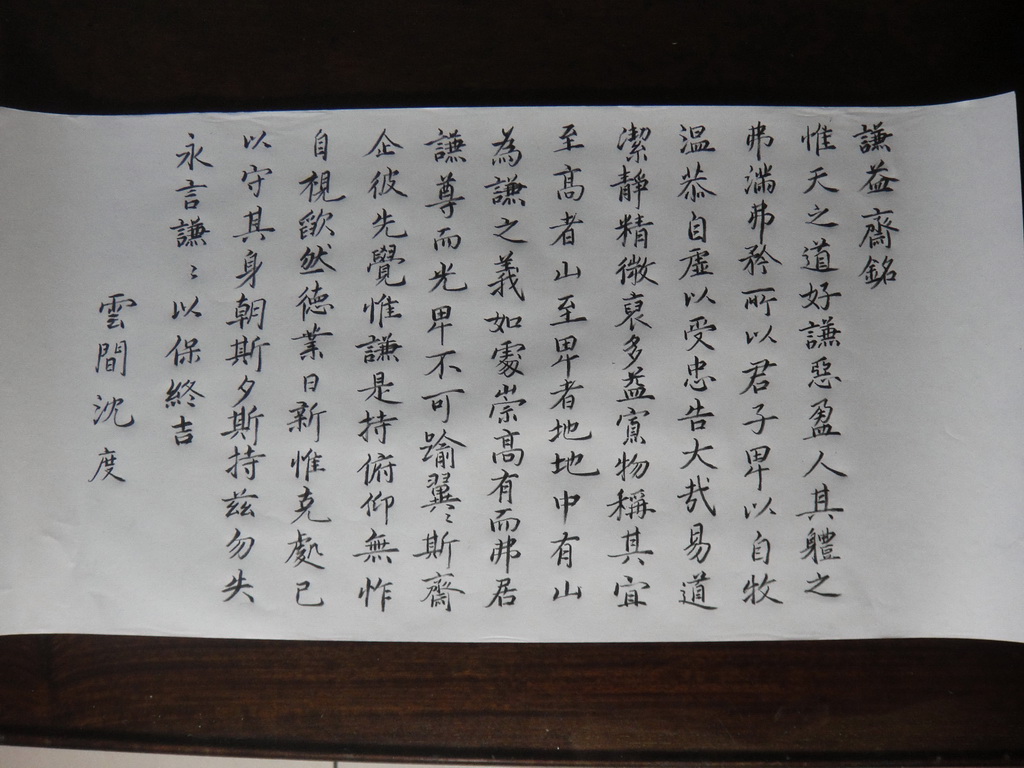 謙益齋銘
惟天之道好謙惡盈人其軆之
弗滿弗矜所以君子卑以自牧
温恭自虛以受忠告大哉易道
潔靜精微裒多益寡物稱其宜
至髙者山至卑者地地中有山
為謙之義如處崇髙有而弗居
謙尊而光卑不可踰翼〻斯齋
企彼先覺惟謙是持俯仰無怍
自視欿然德業日新惟克處已
以守其身朝斯夕斯持兹勿失
永言謙〻以保終吉
雲間沈度